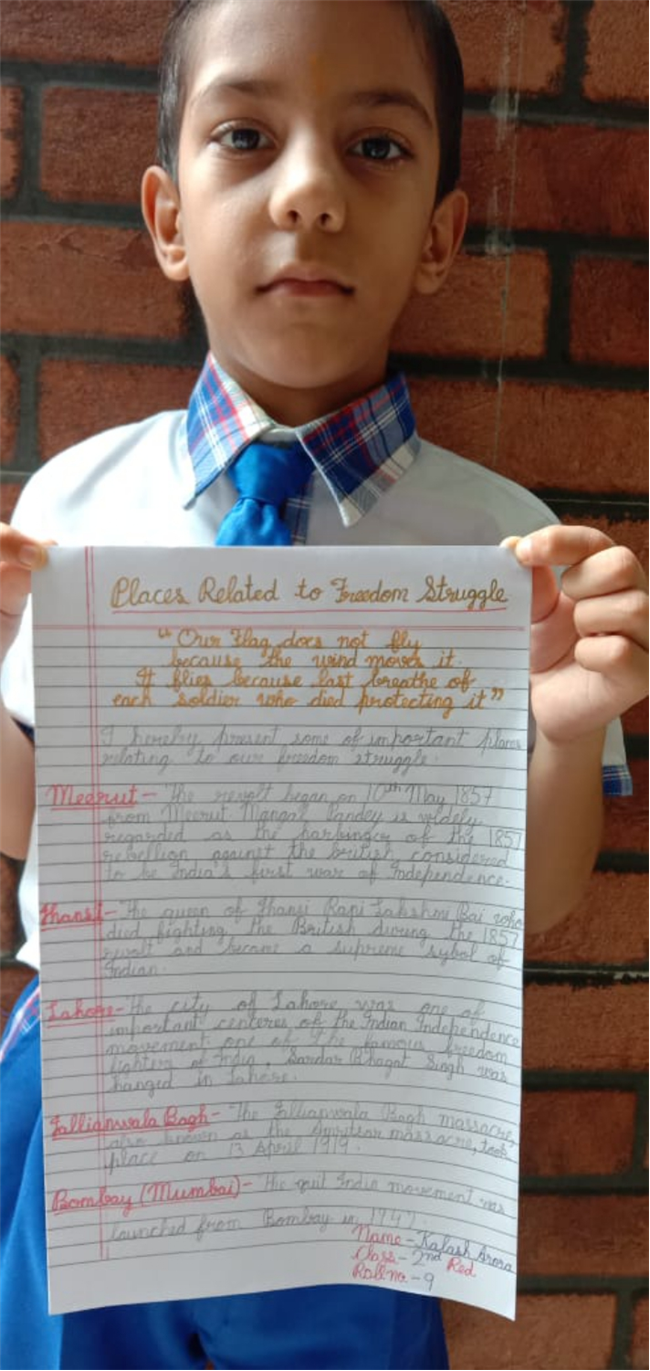 Places Related to Freedom Struggle
“ Our Flag does not fly
because the wind moves it.
It flies because last breathe of
each soldier who died protecting it ”
I hereby present some of important places
relating to our freedom struggle.
Meerut - The revolt began on 10th May 1857
from Meerut Mangal Pandey is widely
regarded as the harbinger of the 1857
rebellion against the british considered
to be India's first war of Independence.
Jhansi - The queen of Jhansi Rani Lakshmi Bai who
died fighting the British during the 1857
revolt and became a supreme sybol of
Indian.
Lahore - The city of Lahore was one of
important centeres of the Indian Independence
movement one of the famous freedom
fighters of India, Sardar Bhagat Singh was
hanged in Lahore.
Jallianwala Bagh - The Jallianwala Bagh massacre,
also known as the Amritsar massacre, took
place on 13 April 1919.
Bombay (Mumbai) - The quit India movement was
launched from Bombay in
Name - Kalash Arora
Class - 2nd Red
Roll no - 9